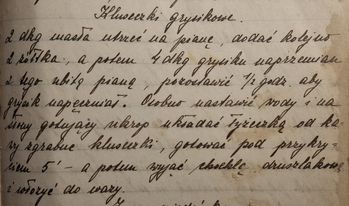 Kluseczki grysikowe.
2 dkg masła utrzeć na pianę, dodać kolejno
2 żółtka, a potem 4 dkg grysiku naprzemian
z tego ubitą pianą, pozostawić 1/2 godz. aby
grysik napęczniał. Osobno nastawić wody i na
gotujący ukrop układać łyżeczką od ka-
wy zgrabne kluseczki, gotować pod przykry-
ciem 5' - a potem wyjąć chochlą druszlakową
i włożyć do wazy.